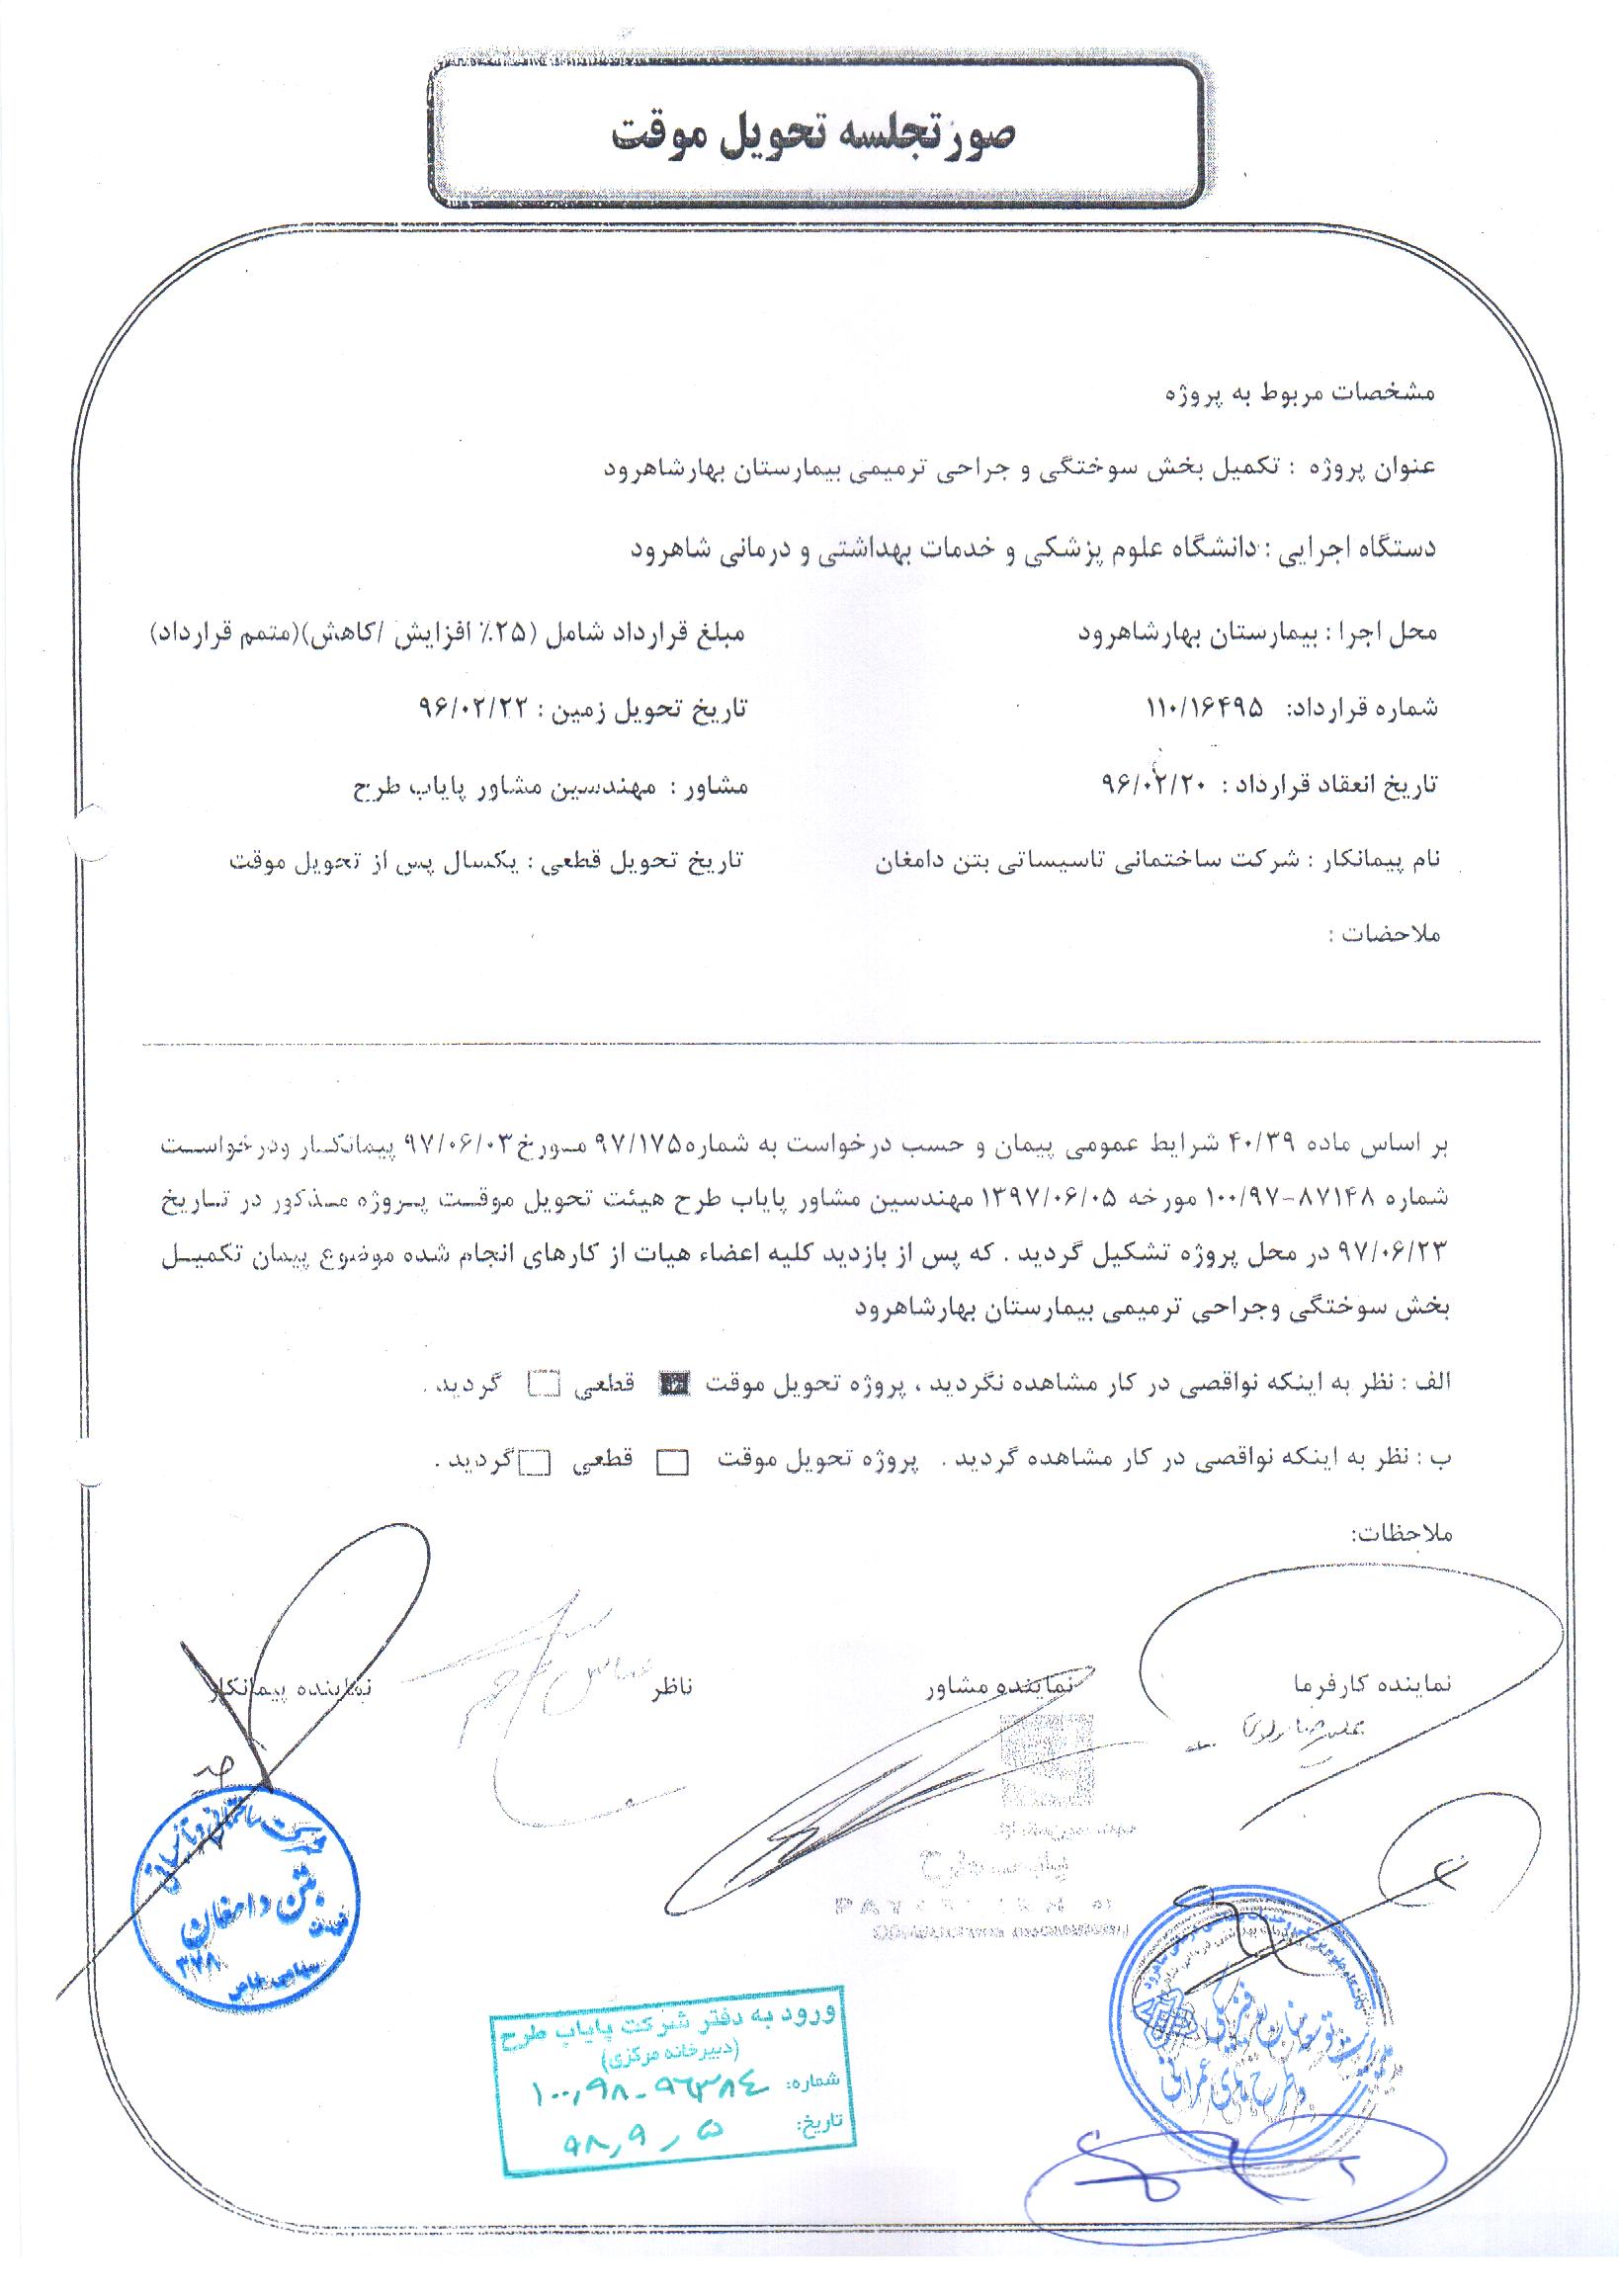 صورتجلسه تحویل موقت
مشخصات مربوط به پروژه
عنوان پروژه : تکمیل بخش سوختگی و جراحی ترمیمی بیمارستان بهارشاهرود
دستگاه اجرایی : دانشگاه علوم پزشکی و خدمات بهداشتی و درمانی شاهرود
محل اجرا : بیمارستان بهارشاهرود
مبلغ قرارداد شامل (۲۵٪ افزایش /کاهش)(متمم قرارداد)
شماره قرارداد: ۱۱۰/۱۶۴۹۵
تاریخ تحویل زمین : ۹۶/۰۲/۲۲
تاریخ انعقاد قرارداد : ۹۶/۰۲/۲۰
مشاور : مهندسین مشاور پایاب طرح
نام پیمانکار : شرکت ساختمانی تاسیساتی بتن دامغان
تاریخ تحویل قطعی : یکسال پس از تحویل موقت
ملاحضات :
بر اساس ماده ۴۰/۳۹ شرایط عمومی پیمان و حسب درخواست به شماره۹۷/۱۷۵ مورخ۹۷/۰۶/۰۳ پیمانکار ودرخواست
شماره ۱۰۰/۹۷-۸۷۱۴۸ مورخه ۱۳۹۷/۰۶/۰۵ مهندسین مشاور پایاب طرح هیئت تحویل موقت پروژه مذکور در تاریخ
۹۷/۰۶/۲۳ در محل پروژه تشکیل گردید . که پس از بازدید کلیه اعضاء هیات از کارهای انجام شده موضوع پیمان تکمیل
بخش سوختگی وجراحی ترمیمی بیمارستان بهارشاهرود
الف : نظر به اینکه نواقصی در کار مشاهده نگردید ، پروژه تحویل موقت قطعی گردید .
ب : نظر به اینکه نواقصی در کار مشاهده گردید . پروژه تحویل موقت قطعی گردید .
ملاحظات:
نماینده کارفرما
نماینده مشاور
ناظر
نماینده پیمانکار
شرکت ساختمانی و تأسیساتی
بتن دامغان
ثبت
۳۷۸
سهامی خاص
ورود به دفتر شرکت پایاب طرح
(دبیرخانه مرکزی)
شماره: ۱۰۰,۹۸-۹۶۳۸۴
تاریخ: ۹۸,۹,۵
و طرح های عمرانی